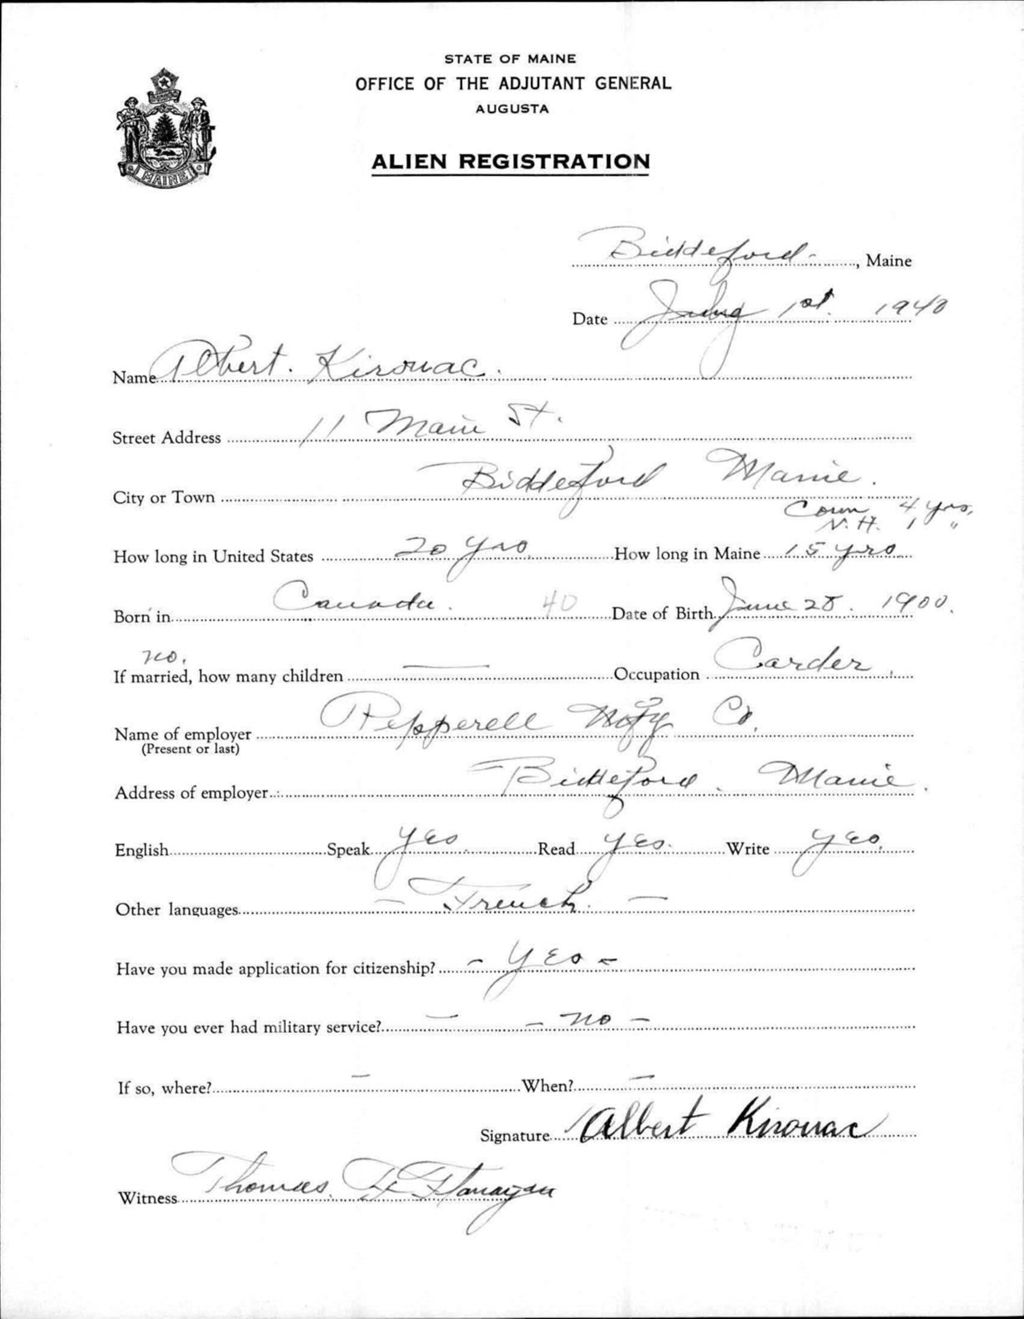 STATE OF MAINE
OFFICE OF THE ADJUTANT GENERAL
AUGUSTA
ALIEN REGISTRATION
MAINE
Biddeford, Maine
Date July 1st. 1940
Name Albert. Kirouac.
Street Address 11 Main St.
City or Town Biddeford Maine.
Conn 4 yrs,
N.H. 1 "
How long in United States 20 yrs How long in Maine 15 yrs
Born in Canada. 40 Date of Birth June 28. 1900.
no.
If married, how many children — Occupation Carder
Name of employer Pepperell Mnfg Co.
(Present or last)
Address of employer Biddeford. Maine.
English Speak yes. Read yes. Write yes.
Other languages - French. -
Have you made application for citizenship? - yes -
Have you ever had military service? - - no -
If so, where? - When? -
Signature Albert Kirouac
Witness Thomas. Flanagan